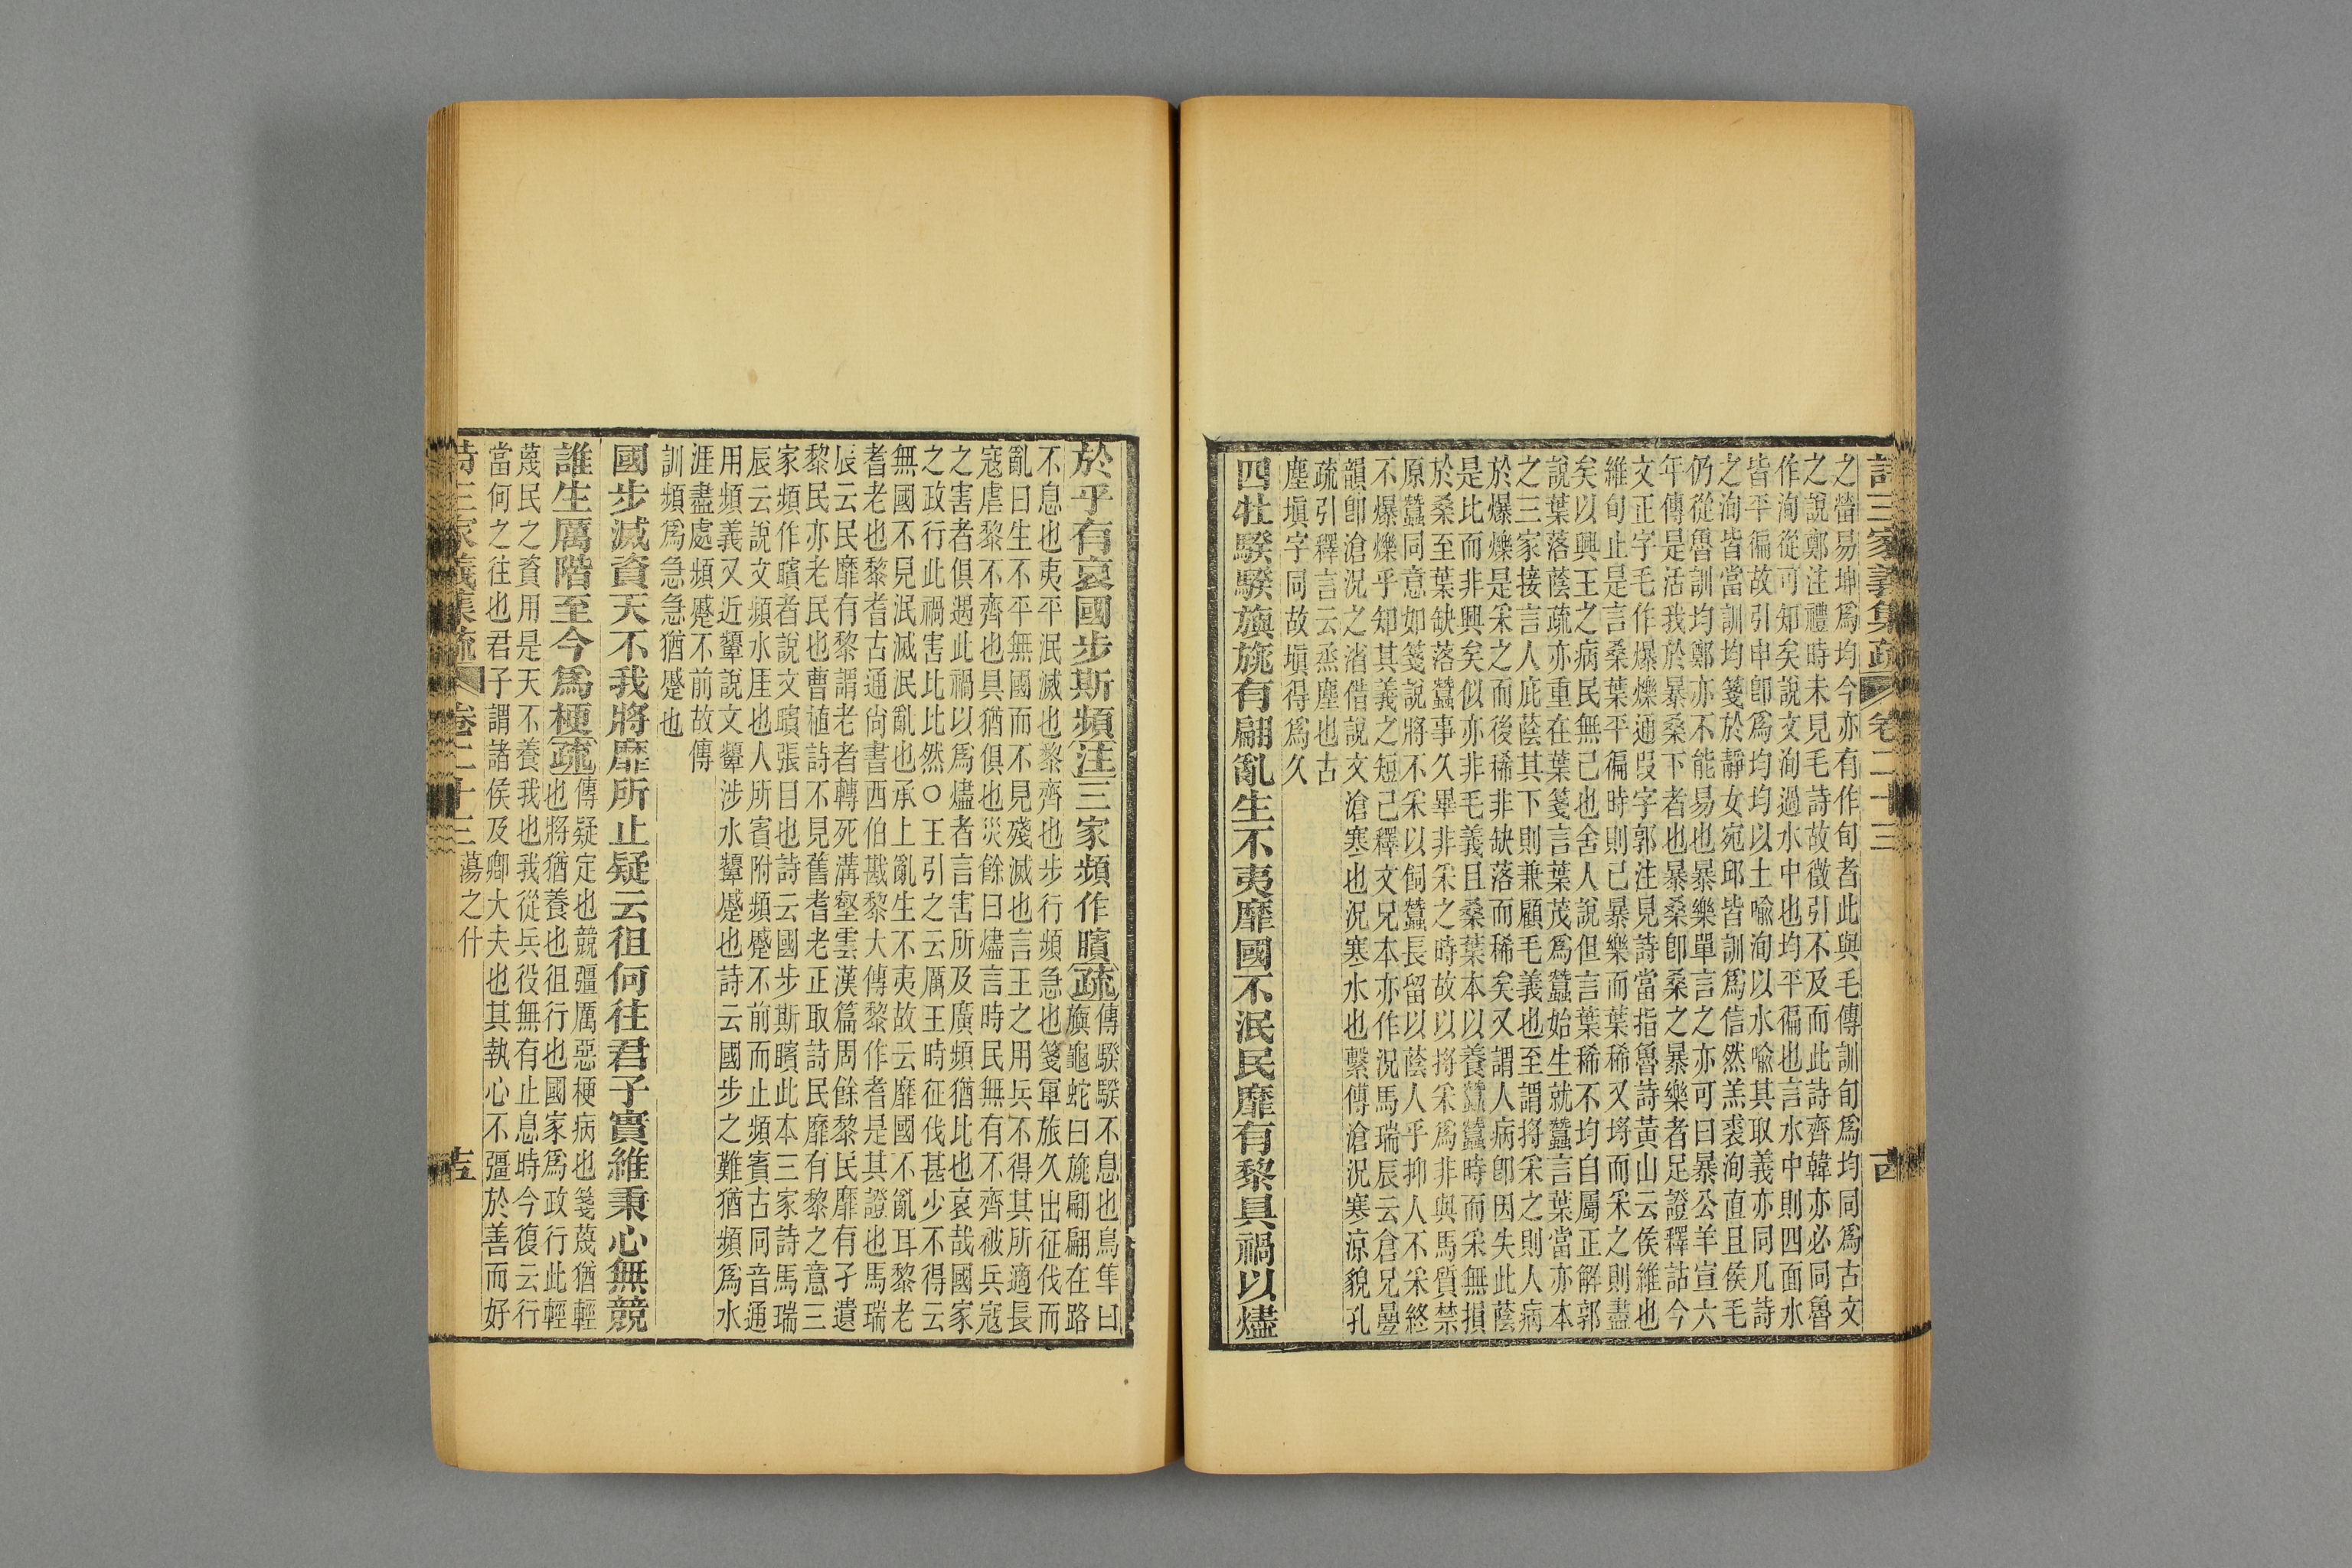 詩三家義集疏 卷二十三 十四
之營易坤爲均今亦有作旬者此與毛傳訓旬爲均同爲古文
之說鄭注禮時未見毛詩故徵引不及而此詩齊韓亦必同魯
作洵從可知矣說文洵過水中也均平徧也言水中則四面水
皆平徧故引申卽爲均均以土喻洵以水喻其取義亦同凡詩
之洵皆當訓均箋於靜女宛邱皆訓爲信然羔裘洵直且侯毛
仍從魯訓均鄭亦不能易也暴樂單言之亦可曰暴公羊宣六
年傳是活我於暴桑下者也暴桑卽桑之暴樂者足證釋詁今
文正字毛作爆爍通叚字郭注見詩當指魯詩黃山云侯維也
維旬止是言桑葉平徧時則己暴樂而葉稀又捋而采之則盡
矣以興王之病民無己也舍人說但言葉稀不均自屬正解郭
說葉落蔭疏亦重在葉箋言葉茂爲蠶始生就蠶言葉當亦本
之三家接言人庇蔭其下則兼顧毛義也至謂捋采之則人病
於爆爍是采之而後稀非缺落而稀矣又謂人病卽因失此蔭
是比而非興矣似亦非毛義且桑葉本以養蠶蠶時而采無損
於桑至葉缺落蠶事久畢非采之時故以捋采爲非與馬質禁
原蠶同意如箋說將不采以飼蠶長留以蔭人乎抑人不采終
不爆爍乎知其義之短己釋文兄本亦作況馬瑞辰云倉兄曡
韻卽滄況之渻借說文滄寒也況寒水也繫傳滄況寒涼貌孔
疏引釋言云烝塵也古
塵塡字同故塡得爲久
四牡騤騤旟旐有翩亂生不夷靡國不泯民靡有黎具禍以燼
於乎有哀國步斯頻注三家頻作矉疏傳騤騤不息也鳥隼曰
旟龜蛇曰旐翩翩在路
不息也夷平泯滅也黎齊也步行頻急也箋軍旅久出征伐而
亂曰生不平無國而不見殘滅也言王之用兵不得其所適長
寇虐黎不齊也具猶俱也災餘曰燼言時民無有不齊被兵寇
之害者俱遇此禍以爲燼者言害所及廣頻猶比也哀哉國家
之政行此禍害比比然○王引之云厲王時征伐甚少不得云
無國不見泯滅泯亂也承上亂生不夷故云靡國不亂耳黎老
耆老也黎耆古通尚書西伯戡黎大傳黎作耆是其證也馬瑞
辰云民靡有黎謂老者轉死溝壑雲漢篇周餘黎民靡有孑遺
黎民亦老民也曹植詩不見舊耆老正取詩民靡有黎之意三
家頻作矉者說文矉張目也詩云國步斯矉此本三家詩馬瑞
辰云說文頻水厓也人所賓附頻蹙不前而止頻賓古同音通
用頻義又近顰說文顰涉水顰蹙也詩云國步之難猶頻爲水
涯盡處頻蹙不前故傳
訓頻爲急急猶蹙也
國步滅資天不我將靡所止疑云徂何往君子實維秉心無競
誰生厲階至今爲梗疏傳疑定也競彊厲惡梗病也箋蔑猶輕
也將猶養也徂行也國家爲政行此輕
蔑民之資用是天不養我也我從兵役無有止息時今復云行
當何之往也君子謂諸侯及卿大夫也其執心不彊於善而好
詩三家義集疏 卷二十三 蕩之什 十五